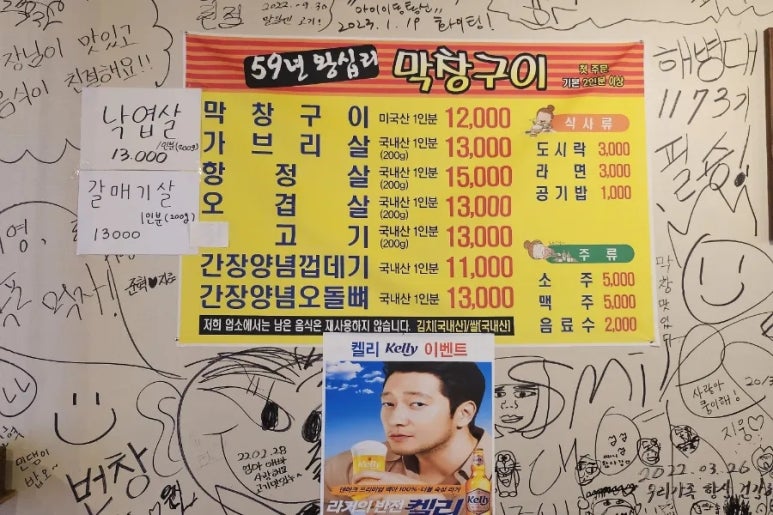 2022.-9.30
2023.1.19 화이팅!
장님이 맛있고
친절해요!!
59년 왕십리 막창구이
첫 주문
기본 2인분 이상
막창구이 미국산 1인분 12,000
가브리살 국내산 1인분 (200g) 13,000
항정살 국내산 1인분 (200g) 15,000
오겹살 국내산 1인분 (200g) 13,000
고기 국내산 1인분 (200g) 13,000
간장양념껍데기 국내산 1인분 11,000
간장양념오돌뼈 국내산 1인분 13,000
저희 업소에서는 남은 음식은 재사용하지 않습니다. 김치[국내산]/쌀[국내산]
식사류
도시락 3,000
라면 3,000
공기밥 1,000
주류
소주 5,000
맥주 5,000
음료수 2,000
낙엽살
1인분(200g)
13.000
갈매기살
1인분(200g)
13000
해병대
1173기
필승!
막창 맛있다
켈리 Kelly 이벤트
Kelly
덴마크 프리미엄 맥아 100%-더블 숙성 라거
라거의 반전 켈리
Kelly
번창
2022.03.26
우리가족 항상 건강
SMI
지웅♡